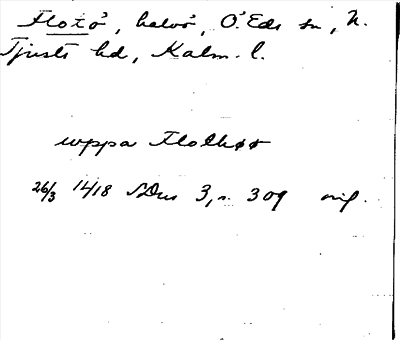 Flotö, halvö, Ö. Eds sn, N.
Tjusts hd, Kalm. l.
uppa Flothøø
26/3 1418 SDns 3, s. 309 orig.